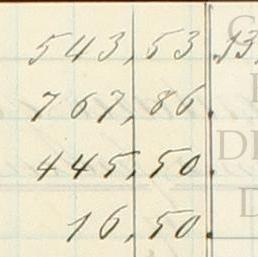 543,53.
767,86.
445,50.
16,50.